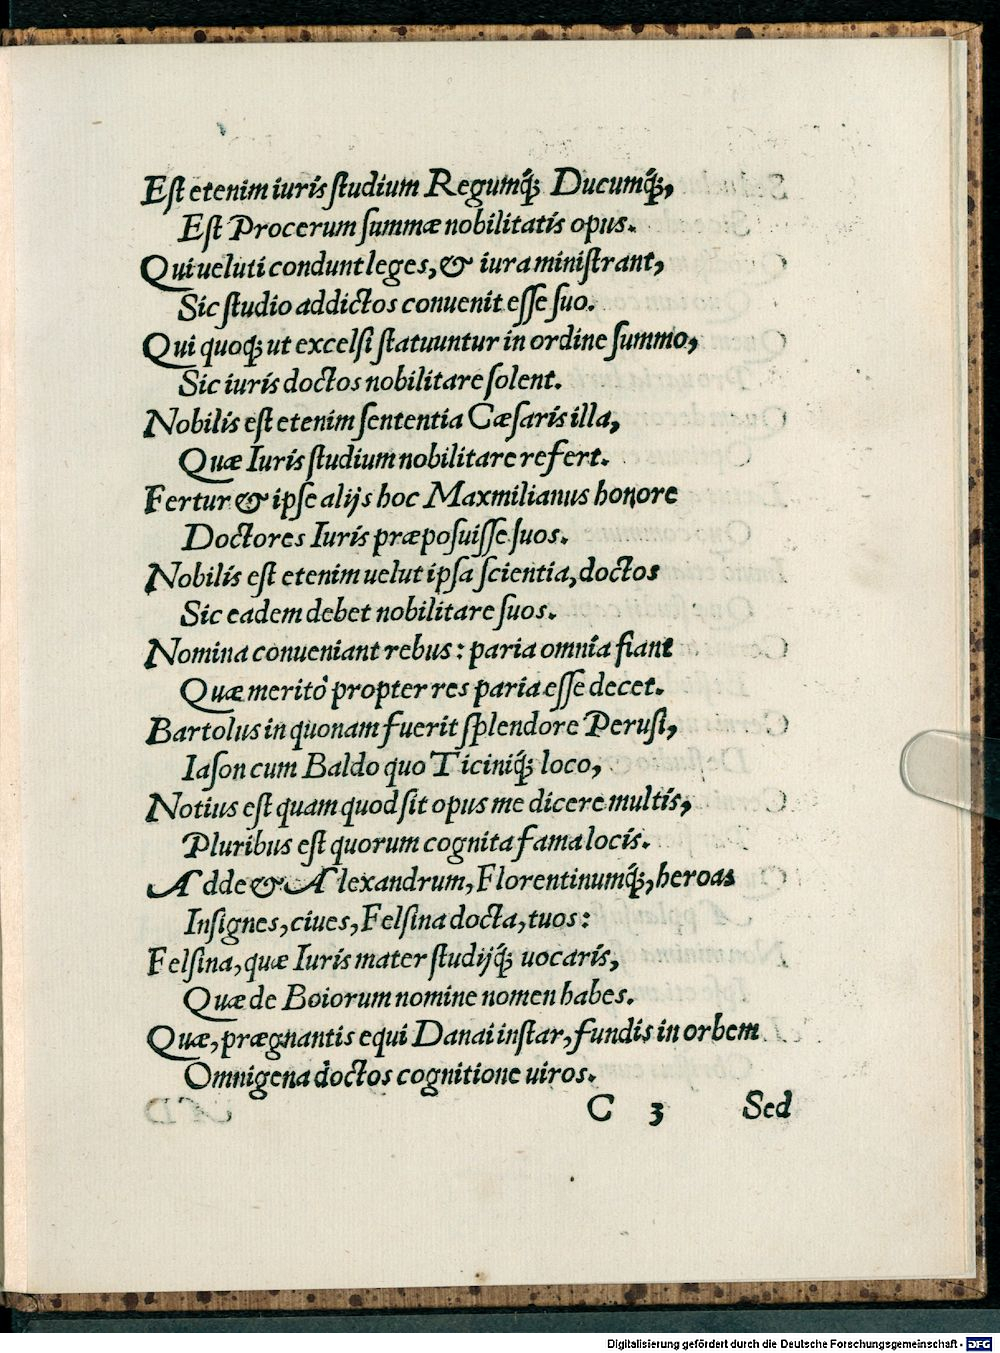 Eſt etenim iuris ſtudium Regumq́; Ducumq́;,
Eſt Procerum ſummæ nobilitatis opus.
Qui ueluti condunt leges, & iura miniſtrant,
Sic ſtudio addictos conuenit eſſe ſuo.
Qui quoq; ut excelſi ſtatuuntur in ordine ſummo,
Sic iuris doctos nobilitare ſolent.
Nobilis eſt etenim ſententia Cæſaris illa,
Quæ Iuris ſtudium nobilitare refert.
Fertur & ipſe alijs hoc Maxmilianus honore
Doctores Iuris præpoſuiſſe ſuos.
Nobilis eſt etenim uelut ipſa ſcientia, doctos
Sic eadem debet nobilitare ſuos.
Nomina conueniant rebus: paria omnia fiant
Quæ meritò propter res paria eſſe decet.
Bartolus in quonam fuerit ſplendore Peruſi,
Iaſon cum Baldo quo Ticiniq́; loco,
Notius eſt quam quod ſit opus me dicere multis,
Pluribus eſt quorum cognita fama locis.
Adde & Alexandrum, Florentinumq́;, heroas
Inſignes, ciues, Felſina docta, tuos:
Felſina, quæ Iuris mater ſtudijq́; uocaris,
Quæ de Boiorum nomine nomen habes.
Quæ, prægnantis equi Danai inſtar, fundis in orbem
Omnigena doctos cognitione uiros.
C 3 Sed
Digitalisierung gefördert durch die Deutsche Forschungsgemeinschaft - DFG